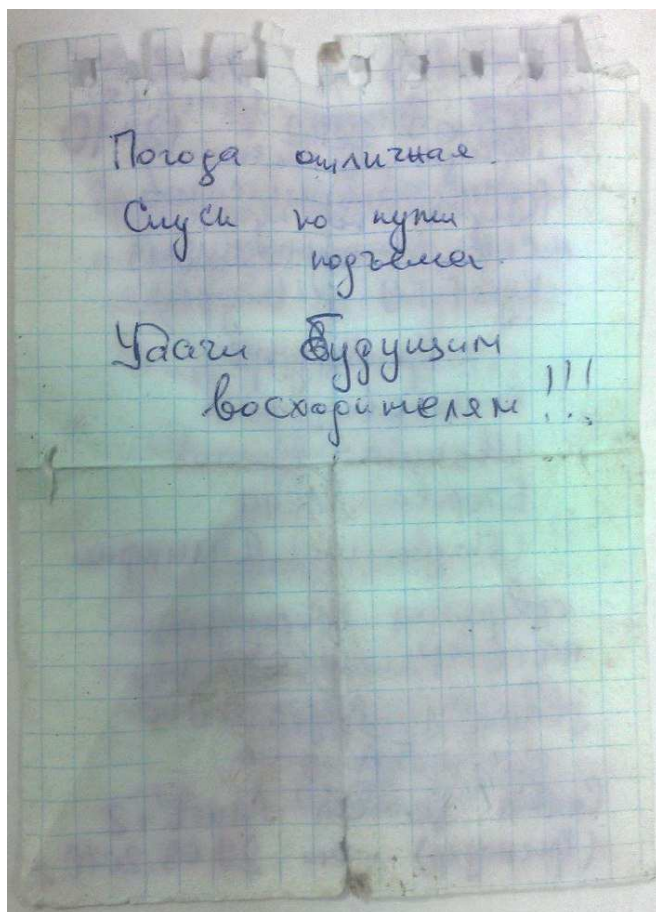 Погода отличная.
Спуск по пути
подъема.
Удачи Будущим
восходителям!!!